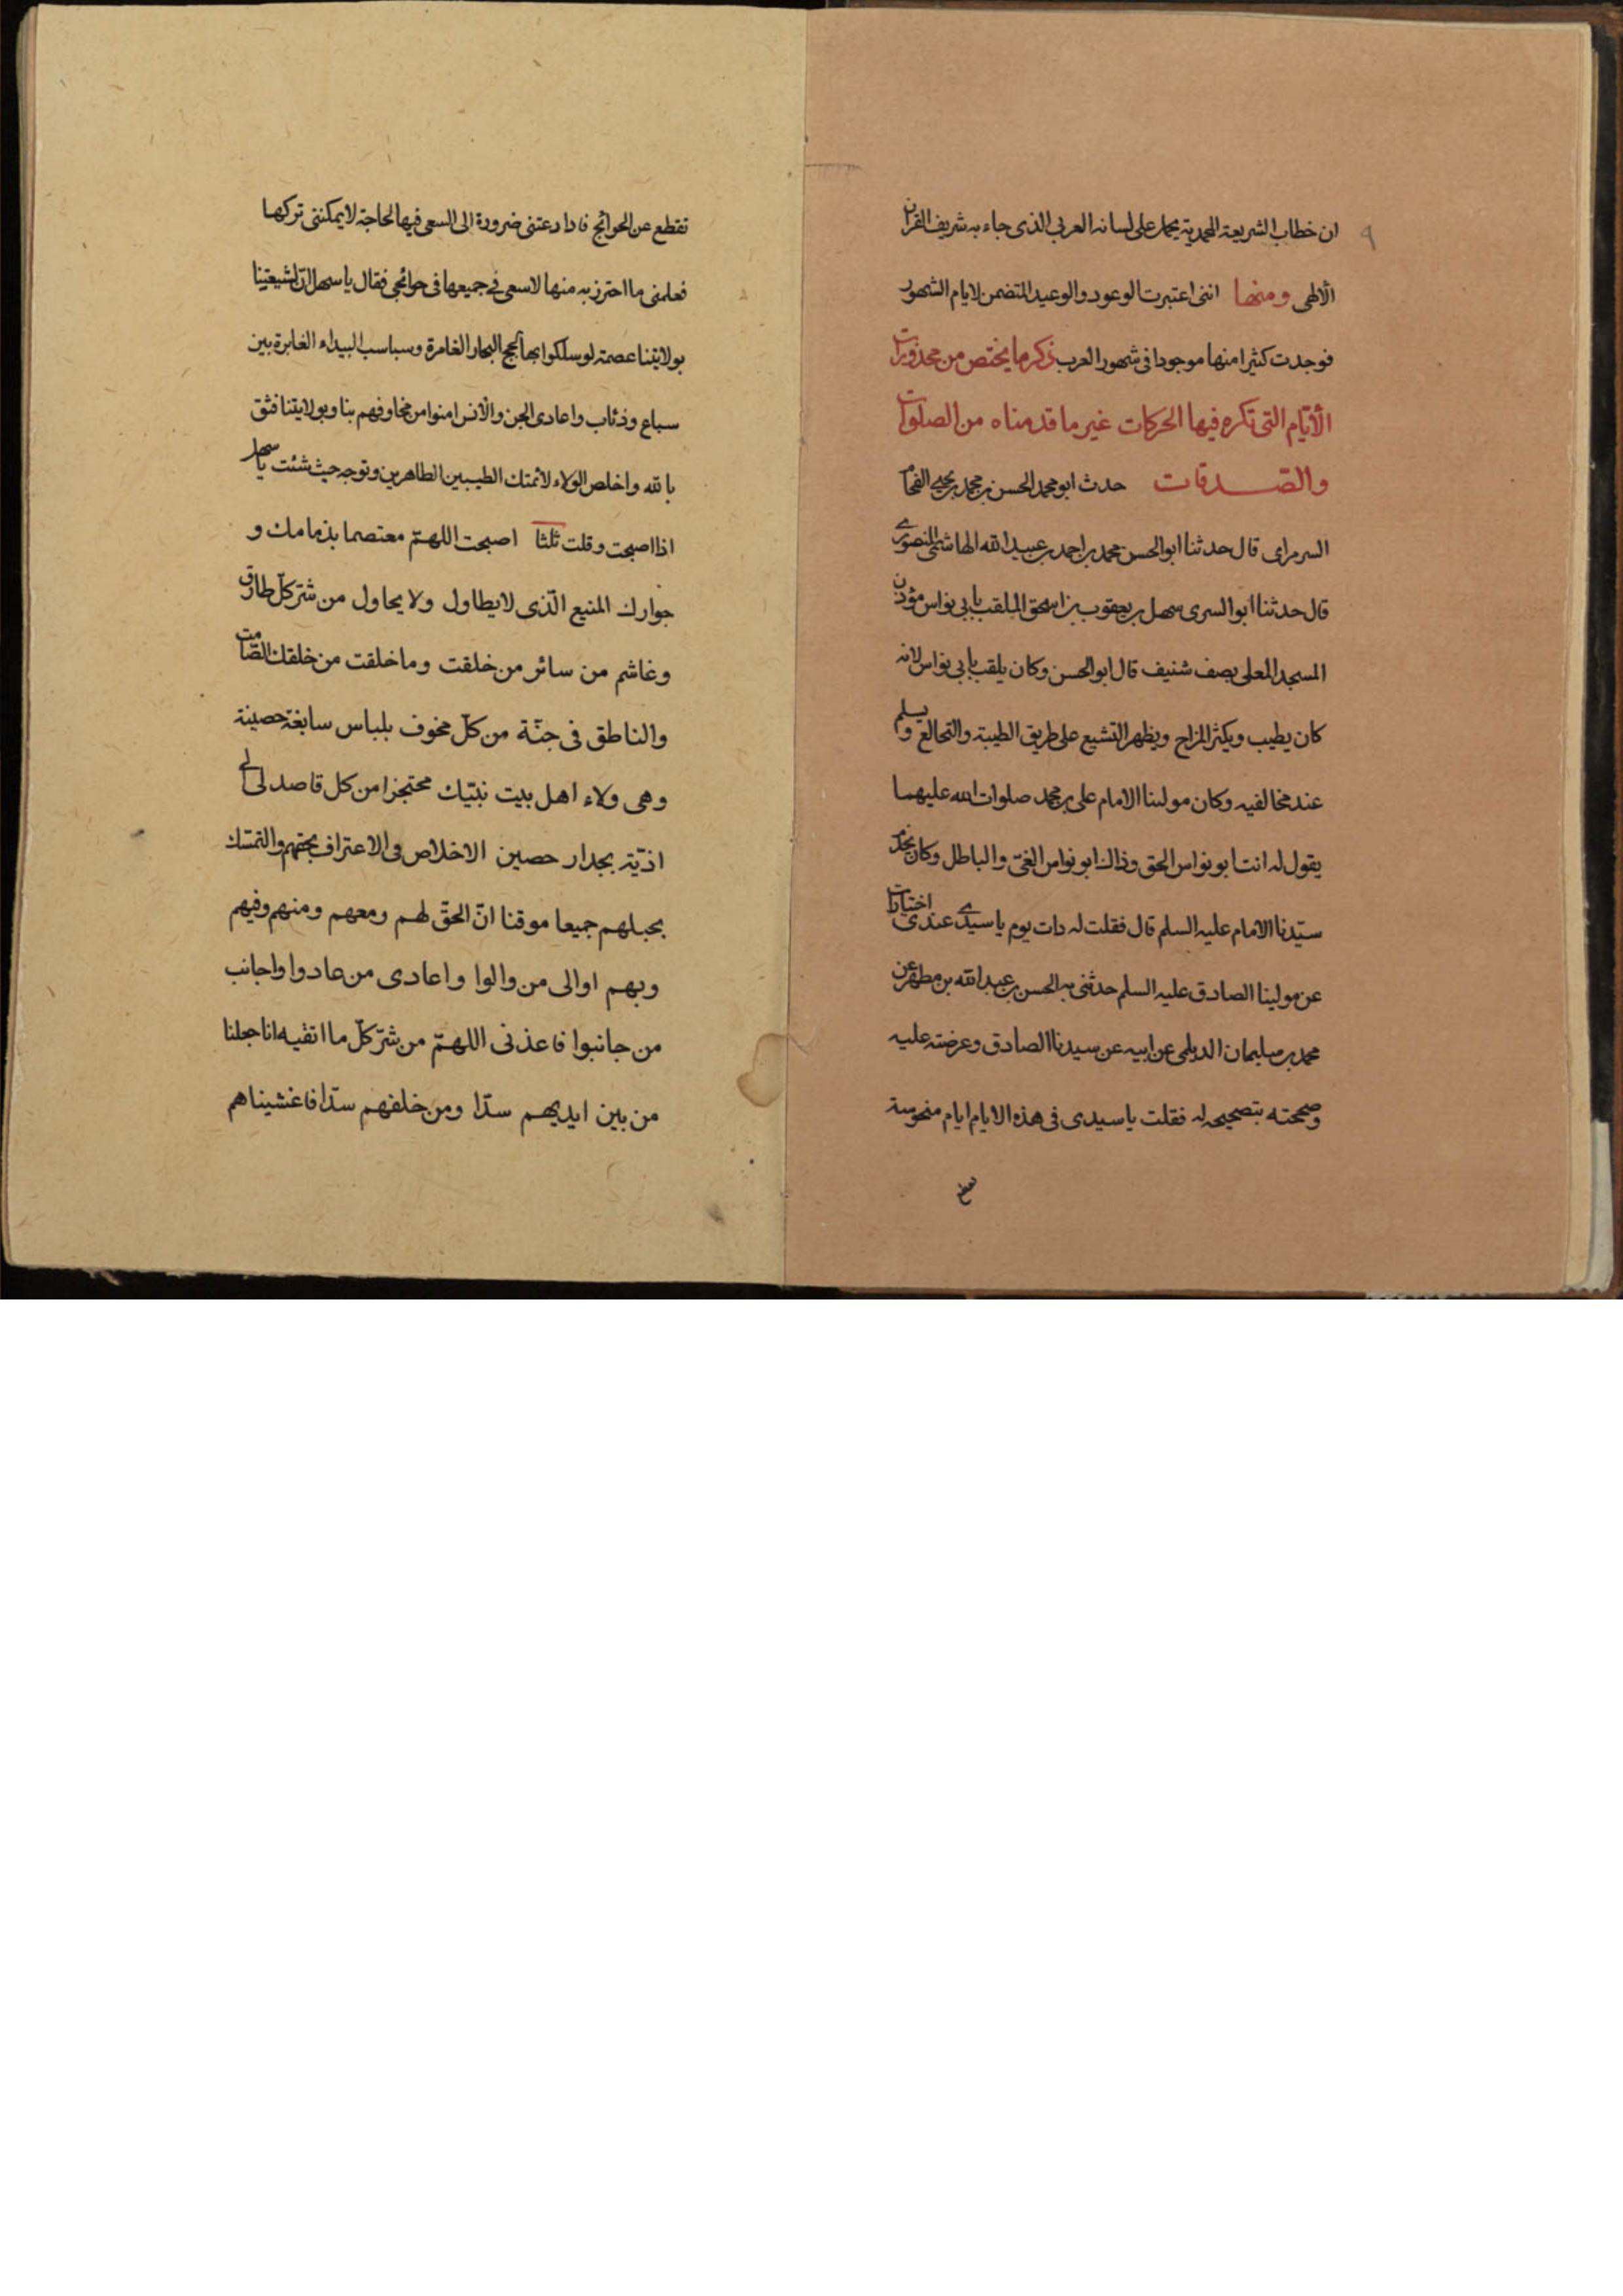 ٩
ان خطاب الشريعة المحمدية يحمل على لسانه العربي الذى جاء به شريف القران
الالهى ومنها اننى اعتبرت الوعود والوعيد المتضمن لايام الشهور
فوجدت كثيرا منها موجودا فى شهور العرب ذكر ما يختص من محذورات
الأيّام التى تكره فيها الحركات غير ما قدمناه من الصلوات
والصّدقات حدث ابو محمد الحسن بن محمد بن يحيى الفحام
السرمراى قال حدثنا ابو الحسن محمد بن احمد بن عبيد الله الهاشمى المنصورى
قال حدثنا ابو السرى سهل بن يعقوب بن اسحق الملقب بابى نواس مؤذن
المسجد المعلى بصف شنيف قال ابو الحسن وكان يلقب بابى نواس لانه
كان يطيب ويكثر المزاح ويظهر التشيع على طريق الطيبة والتخالع ويسلم
عند مخالفيه وكان مولينا الامام على بن محمد صلوات الله عليهما
يقول له انت ابو نواس الحق وذاك ابو نواس الغىّ والباطل وكان يخدم
سيّدنا الامام عليه السلم قال فقلت له ذات يوم يا سيدى عندى اختيارات
عن مولينا الصادق عليه السلم حدثنى به الحسن بن عبد الله بن مطهر عن
محمد بن سليمان الديلمى عن ابيه عن سيدنا الصادق وعرضته عليه
وصححته بتصحيحه له فقلت يا سيدى فى هذه الايام ايام منحوسة
تقطع عن الحوائج فاذا دعتنى ضرورة الى السعى فيها لحاجة لا يمكننى تركها
فعلمنى ما احترز به منها لاسعى فى جميعها فى حوائجى فقال يا سهل انّ لشيعتنا
بولايتنا عصمة لو سلكوا بها لجج البحار الغامرة وسباسب البيداء الغابرة بين
سباع وذئاب واعادى الجن والانس امنوا من مخاوفهم بنا وبولايتنا فثق
بالله واخلص الولاء لائمتك الطيبين الطاهرين وتوجه حيث شئت يا سهل
اذا اصبحت وقلت ثلثا اصبحت اللهمّ معتصما بذمامك و
جوارك المنيع الّذى لا يطاول ولا يحاول من شر كلّ طارق
وغاشم من سائر من خلقت وما خلقت من خلقك الصّامت
والناطق فى جنّة من كلّ مخوف بلباس سابغة حصينة
وهى ولاء اهل بيت نبيّك محتجزا من كل قاصد لى الى
اذيّة بجدار حصين الاخلاص فى الاعتراف بحقهم والتمسّك
بحبلهم جميعا موقنا انّ الحقّ لهم ومعهم ومنهم وفيهم
وبهم اوالى من والوا واعادى من عادوا واجانب
من جانبوا فاعذنى اللهمّ من شرّ كلّ ما اتقيه انا جعلنا
من بين ايديهم سدّا ومن خلفهم سدّا فاغشيناهم